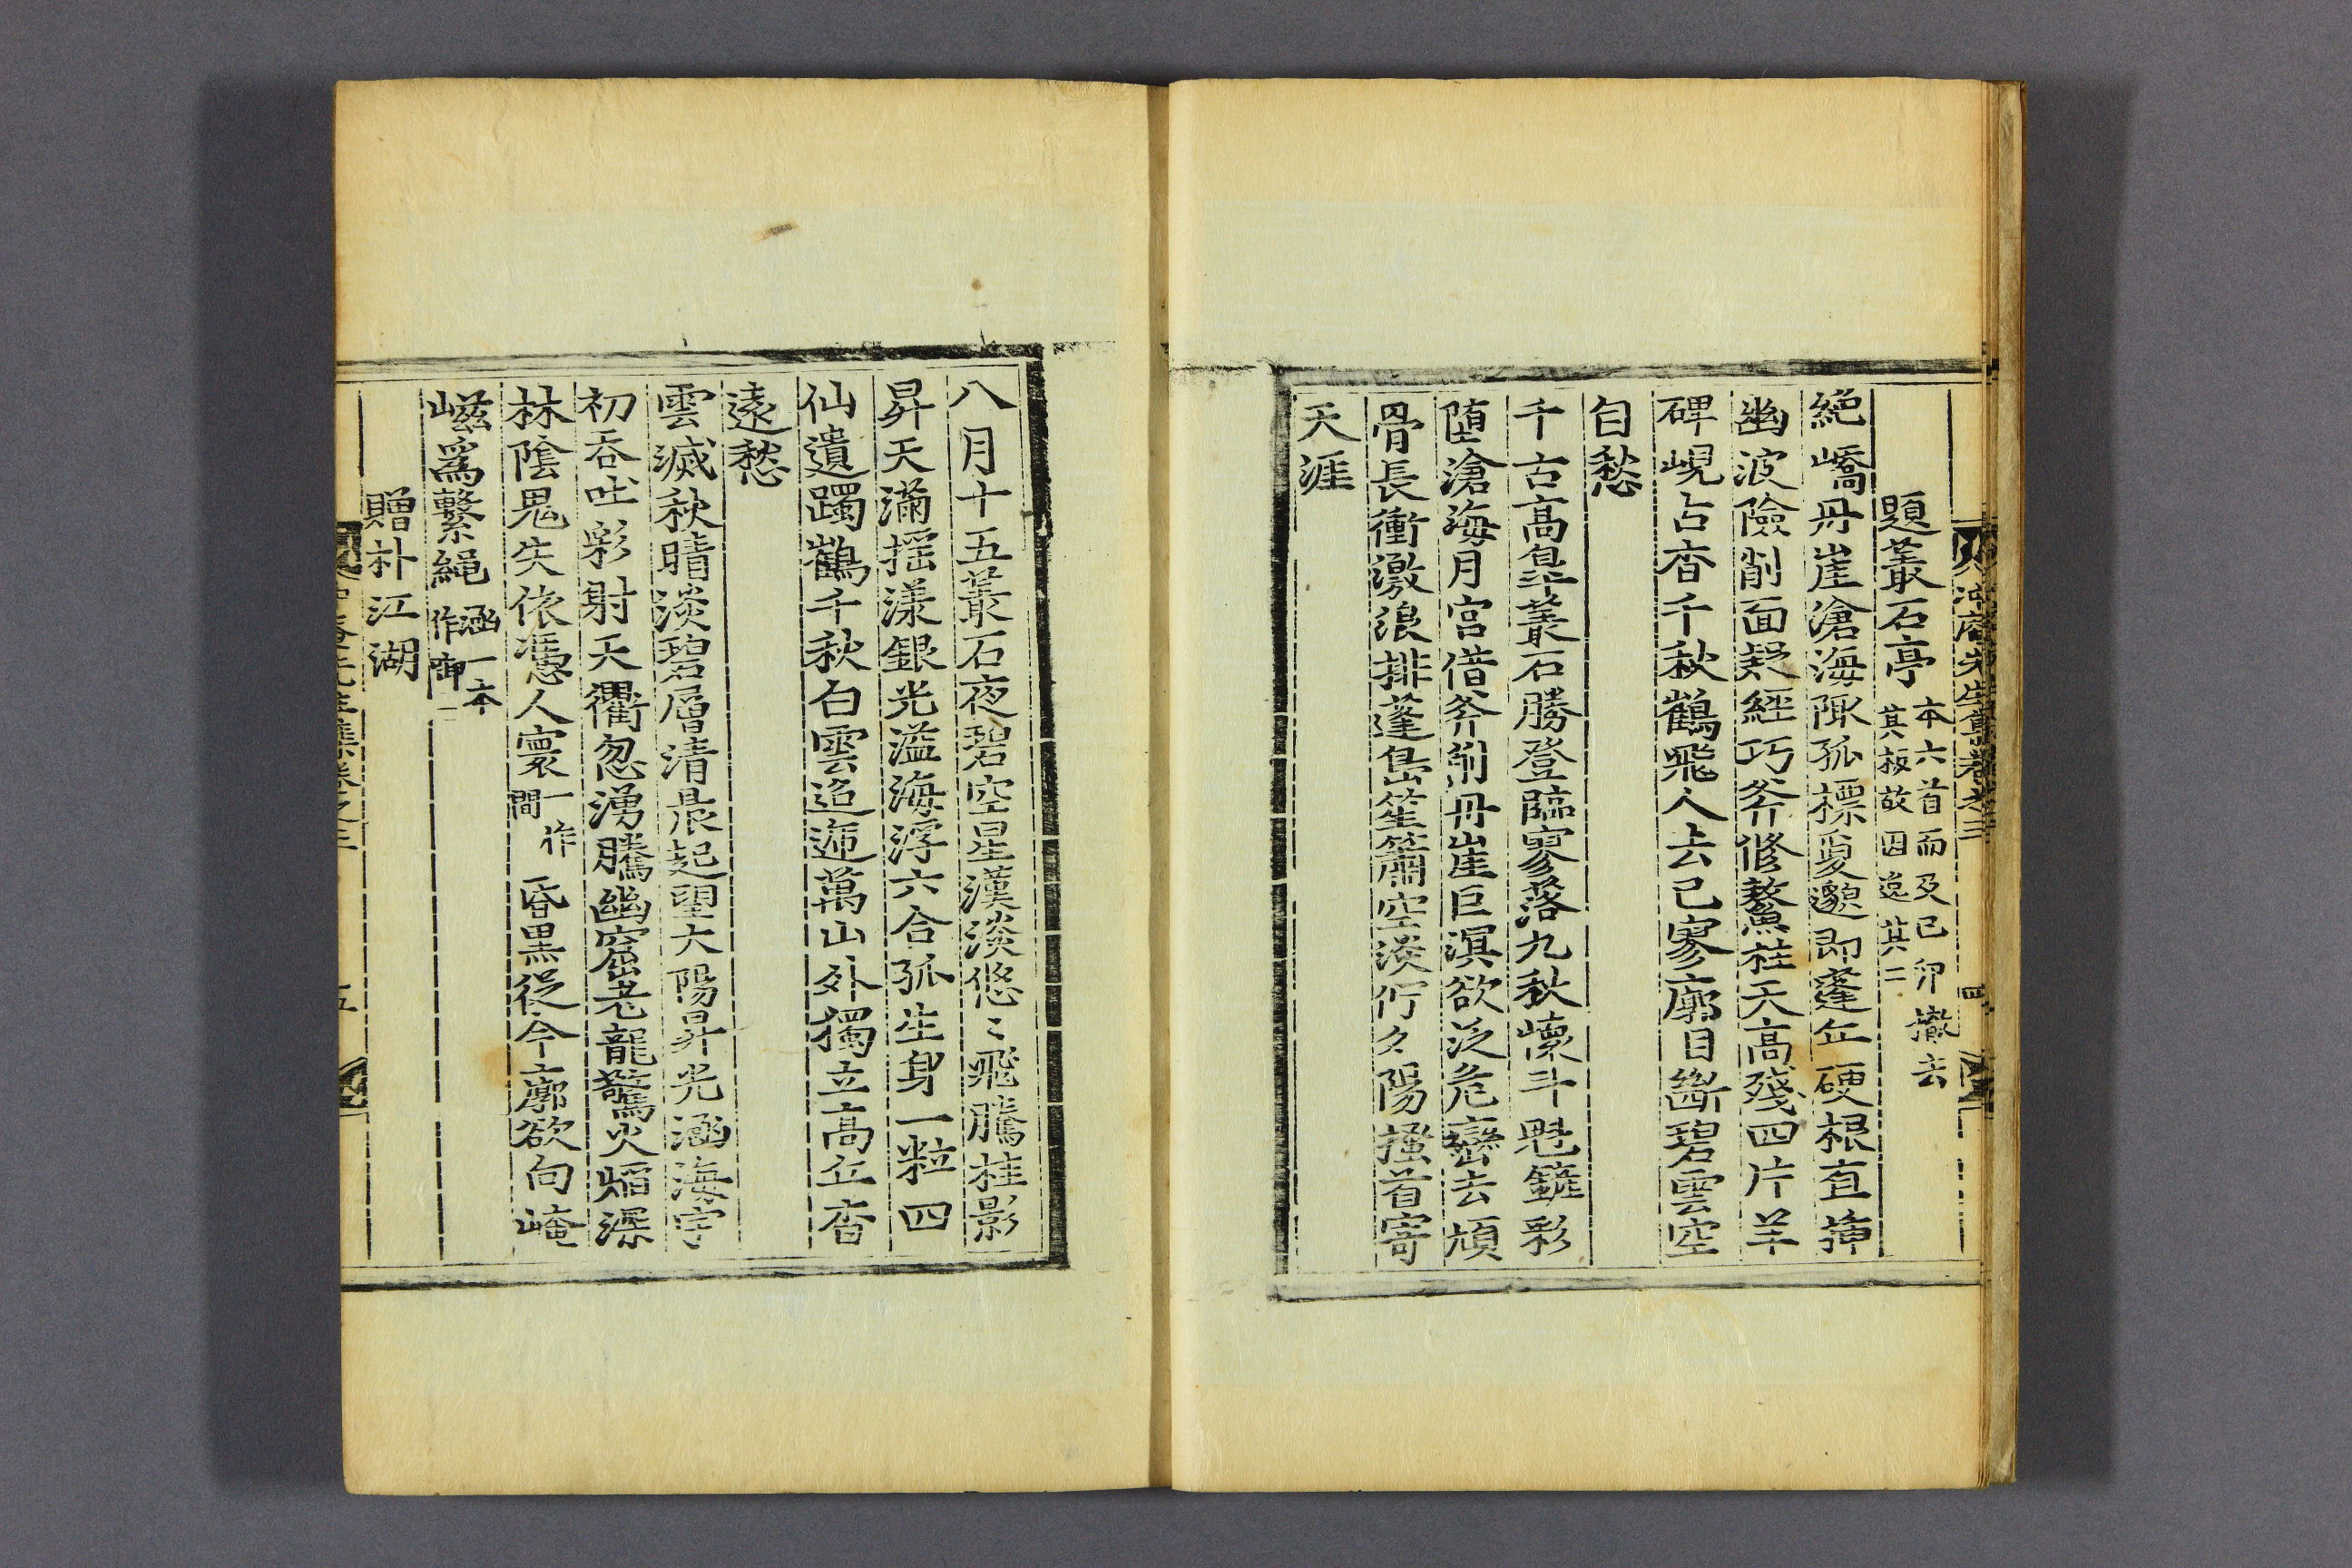 題叢石亭 本六首而及已卯撤去
其板故因逸其二
絶嶠丹崖滄海陬孤標夐邈即蓬丘硬根直揷
幽波險削面疑經巧斧修鰲柱天高殘四片羊
碑峴占杳千秋鶴飛人去已寥廓目斷碧雲空
自愁
千古高皐叢石勝登臨寥落九秋懷斗魁鏇彩
墮滄海月宮借斧削丹崖巨溟欲泛危巒去頑
骨長衝激浪排蓬島笙簫空淡佇夕陽搔首寄
天涯
八月十五叢石夜碧空星漢淡悠〻飛騰桂影
昇天滿搖漾銀光溢海浮六合孤生身一粒四
仙遺躅鶴千秋白雲迢遞萬山外獨立高丘杳
遠愁
雲滅秋晴淡碧層清晨起望大陽昇光涵海宇
初吞吐彩射天衢忽湧騰幽窟老龍驚火焰深
林陰鬼失依憑人寰 一作間 昏黑從今廓欲向崦
嵫爲繫繩 涵一本作
贈朴江湖
五